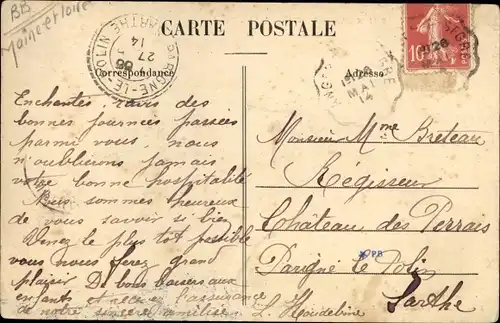 BB
Maine et Loire
CARTE POSTALE
Correspondance
Adresse
PARIGNÉ-LE-POLIN
SARTHE
27
14
10
MAI
14
Enchantés, ravis des
bonnes journées passées
parmi vous, nous
n'oublierons jamais
votre bonne hospitalité
Puis sommes heureux
de vous savoir si bien
Venez le plus tôt possible
vous nous ferez grand
plaisir De bons baisers aux
enfants et recevez l'assurance
de notre sincère amitié
L. Houdebine
Monsieur Mme Breteau
Régisseur
Château des Perrais
Parigné le Polin
Sarthe
PB